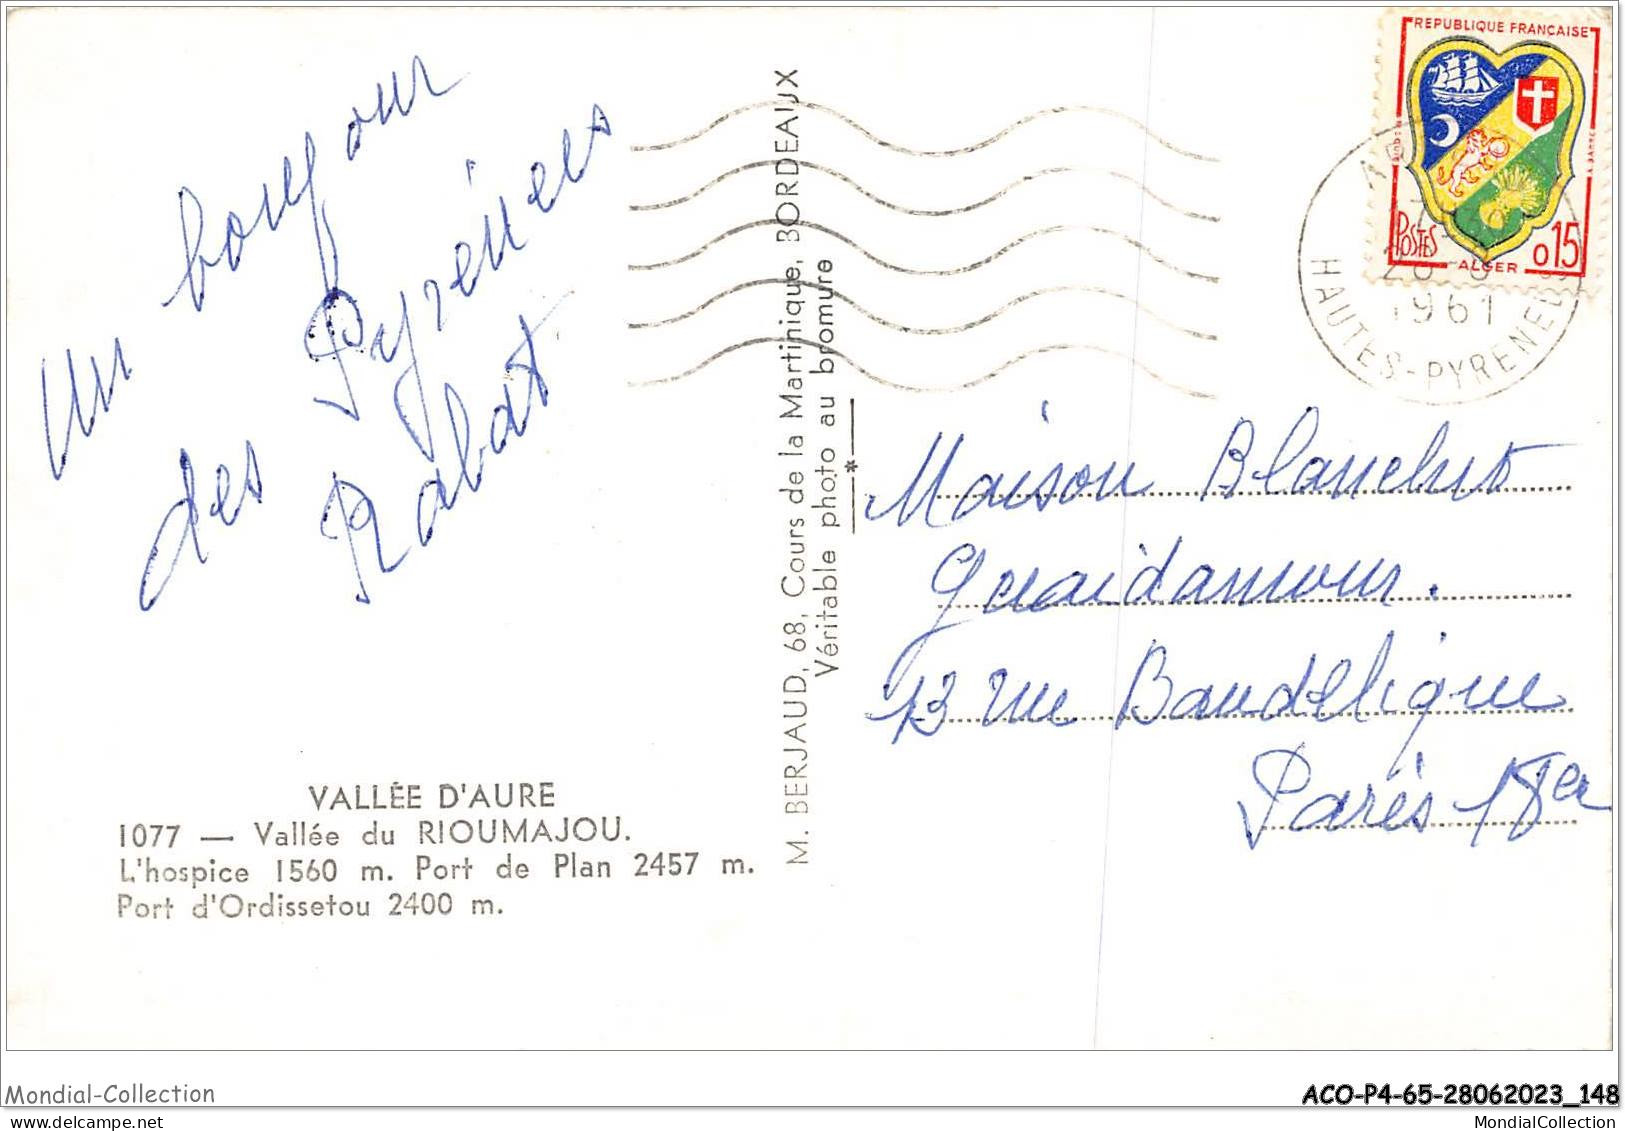 Un bonjour
des Pyrénées
Rabat
VALLÉE D'AURE
1077 — Vallée du RIOUMAJOU.
L'hospice 1560 m. Port de Plan 2457 m.
Port d'Ordissetou 2400 m.
M. BERJAUD, 68, Cours de la Martinique, BORDEAUX
Véritable photo au bromure
REPUBLIQUE FRANÇAISE
POSTES
ALGER
0,15
1961
HAUTES-PYRENEES
Maison
13 rue Baudelique
Paris 18er
Mondial-Collection
ACO-P4-65-28062023_148
MondialCollection